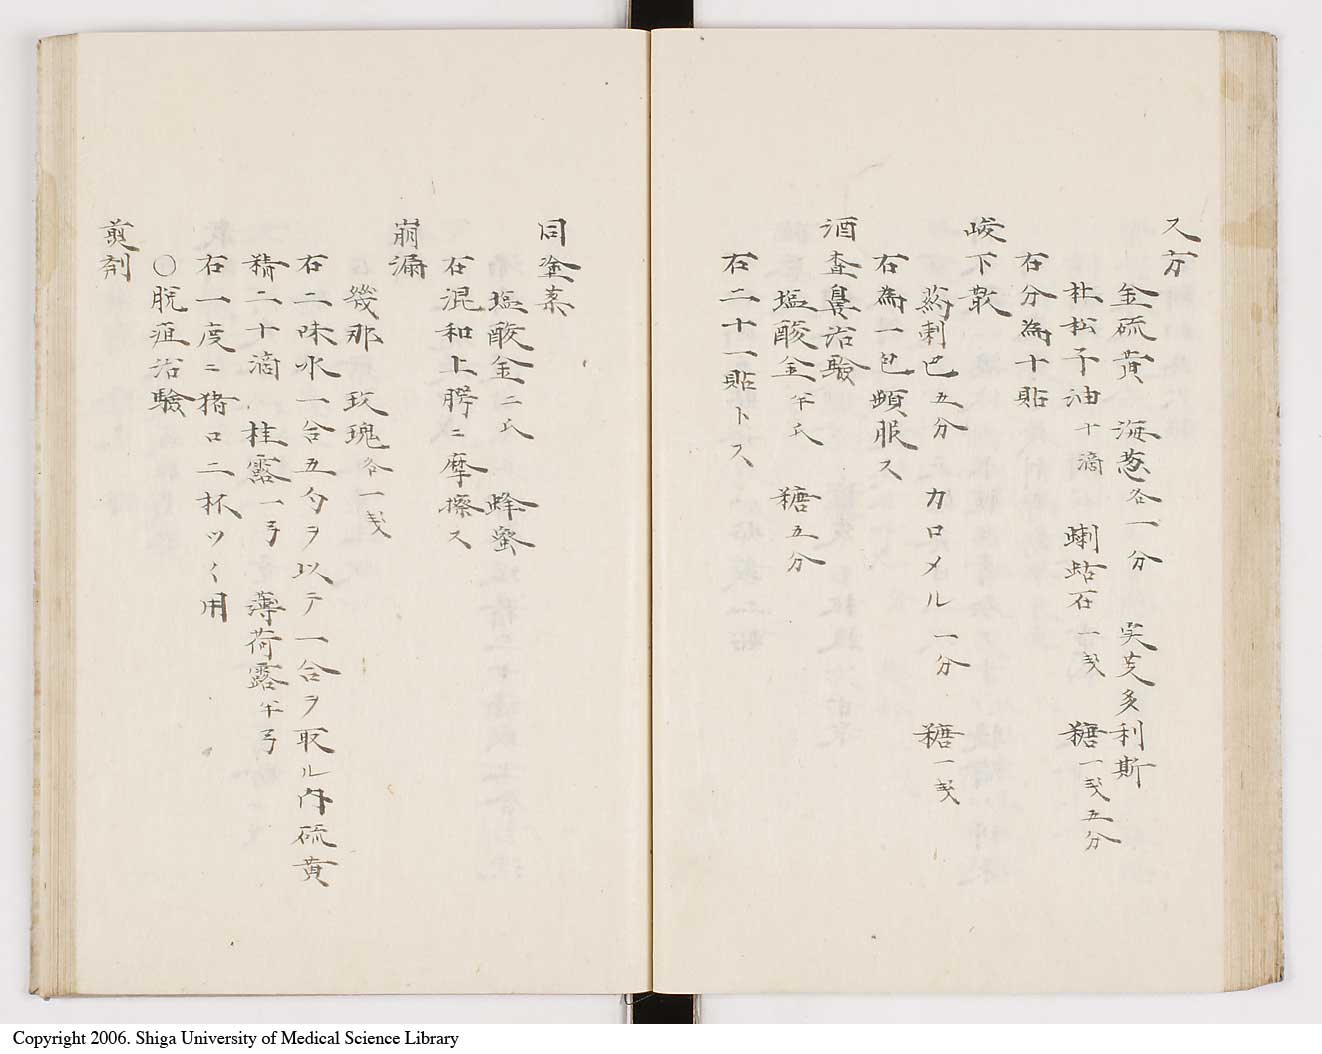 又方
金硫黄 海葱各一分 実芰多利斯
杜松子油十滴 喇蛄石一戔 糖一戔五分
右分為十貼
峻下散
葯刺巴五分 カロメル一分 糖一戔
右為一包頓服ス
酒査鼻治験
塩酸金半氏 糖五分
右二十一貼トス
同塗薬
塩酸金二氏 蜂蜜
右混和上腭ニ摩擦ス
崩漏
幾那 玫瑰各一戔
右二味水一合五勺ヲ以テ一合ヲ取ル内硫黄
精二十滴 桂露一弓 薄荷露半弓
右一度ニ猪口二杯ツヽ用
○脱疽治験
煎剤
Copyright 2006. Shiga University of Medical Science Library